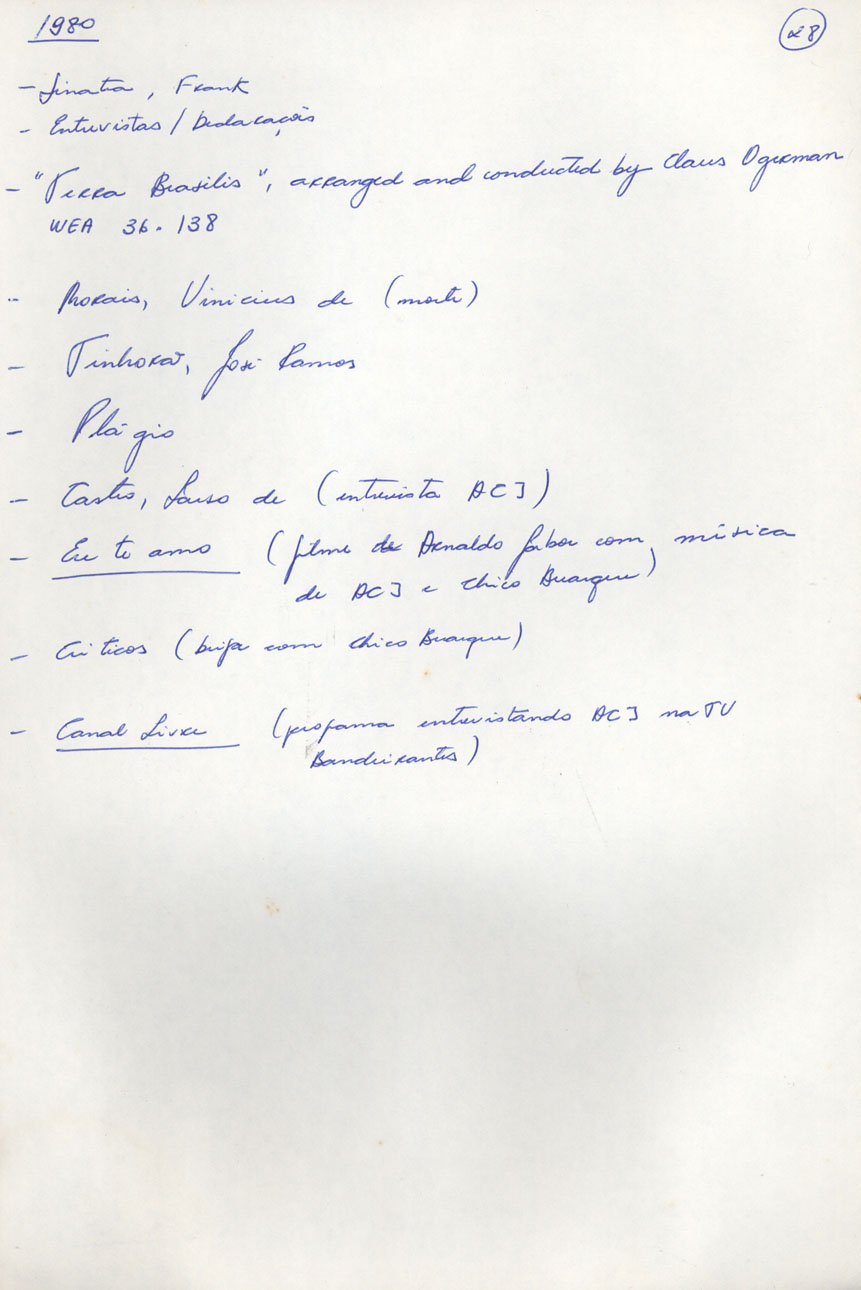 1980
28
- Sinatra, Frank
- Entrevistas / Declarações
- "Terra Brasilis", arranged and conducted by Claus Ogerman
WEA 36.138
- Morais, Vinicius de (morte)
- Tinhorão, José Ramos
- Plágio
- Castro, Lauso de (entrevista ACJ)
- Eu te amo (filme de Arnaldo Jabor com música
de ACJ e Chico Buarque)
- Críticos (briga com Chico Buarque)
- Canal Livre (programa entrevistando ACJ na TV
Bandeirantes)